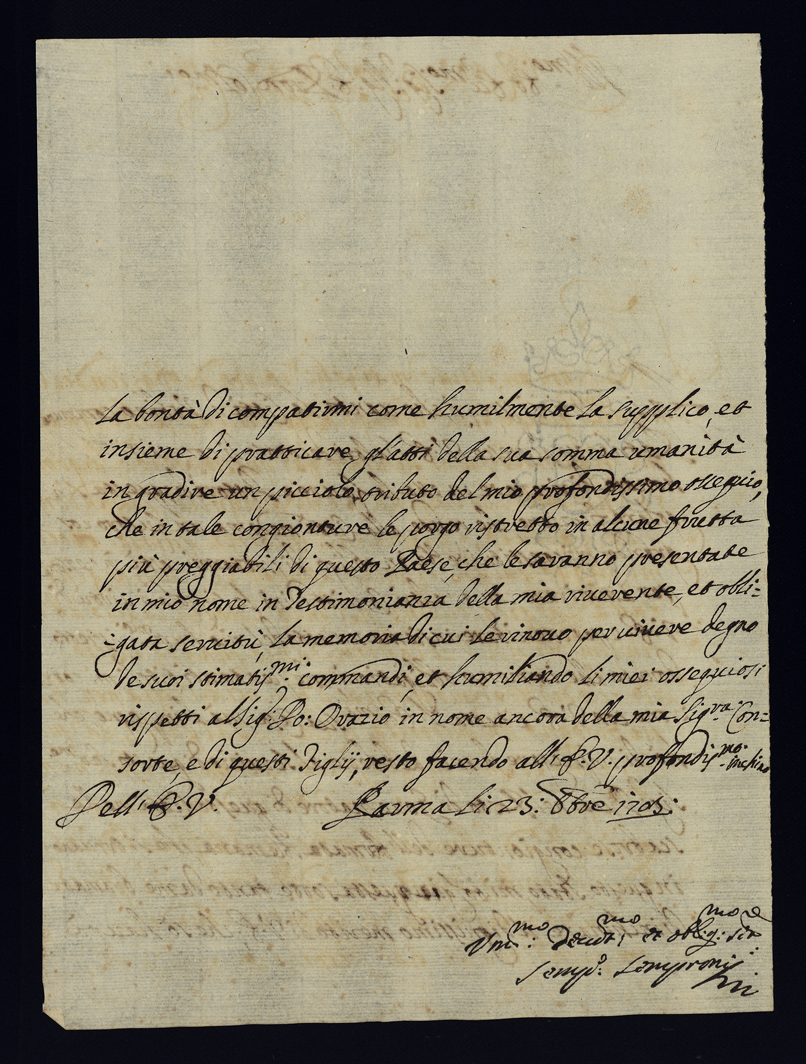 la bontà di compatirmi come humilmente la supplico, et
insieme di pratticare gl'atti della sua somma umanità
in gradire un picciolo tributo del mio profondissimo ossequio,
che in tale congionture le porgo ristretto in alcune frutta
più preggiabili di questo Paese, che le saranno presentate
in mio nome in testimonianza della mia riverente, et obli=
=gata servitù, la memoria di cui le rinovo per vivere degno
de suoi stimatiss.mi commandi, et humiliando li miei ossequiosi
rispetti al Sig: Co: Orazio in nome ancora della mia Sig.ra Con=
sorte, e di questi Figlij, resto facendo all' E.V. profondiss.mo inchino
Dell' E.V. Parma li 23: 8bre 1703:
Um.mo: Devot.mo: et oblig.mo: Se.re
Semp. Sempronij